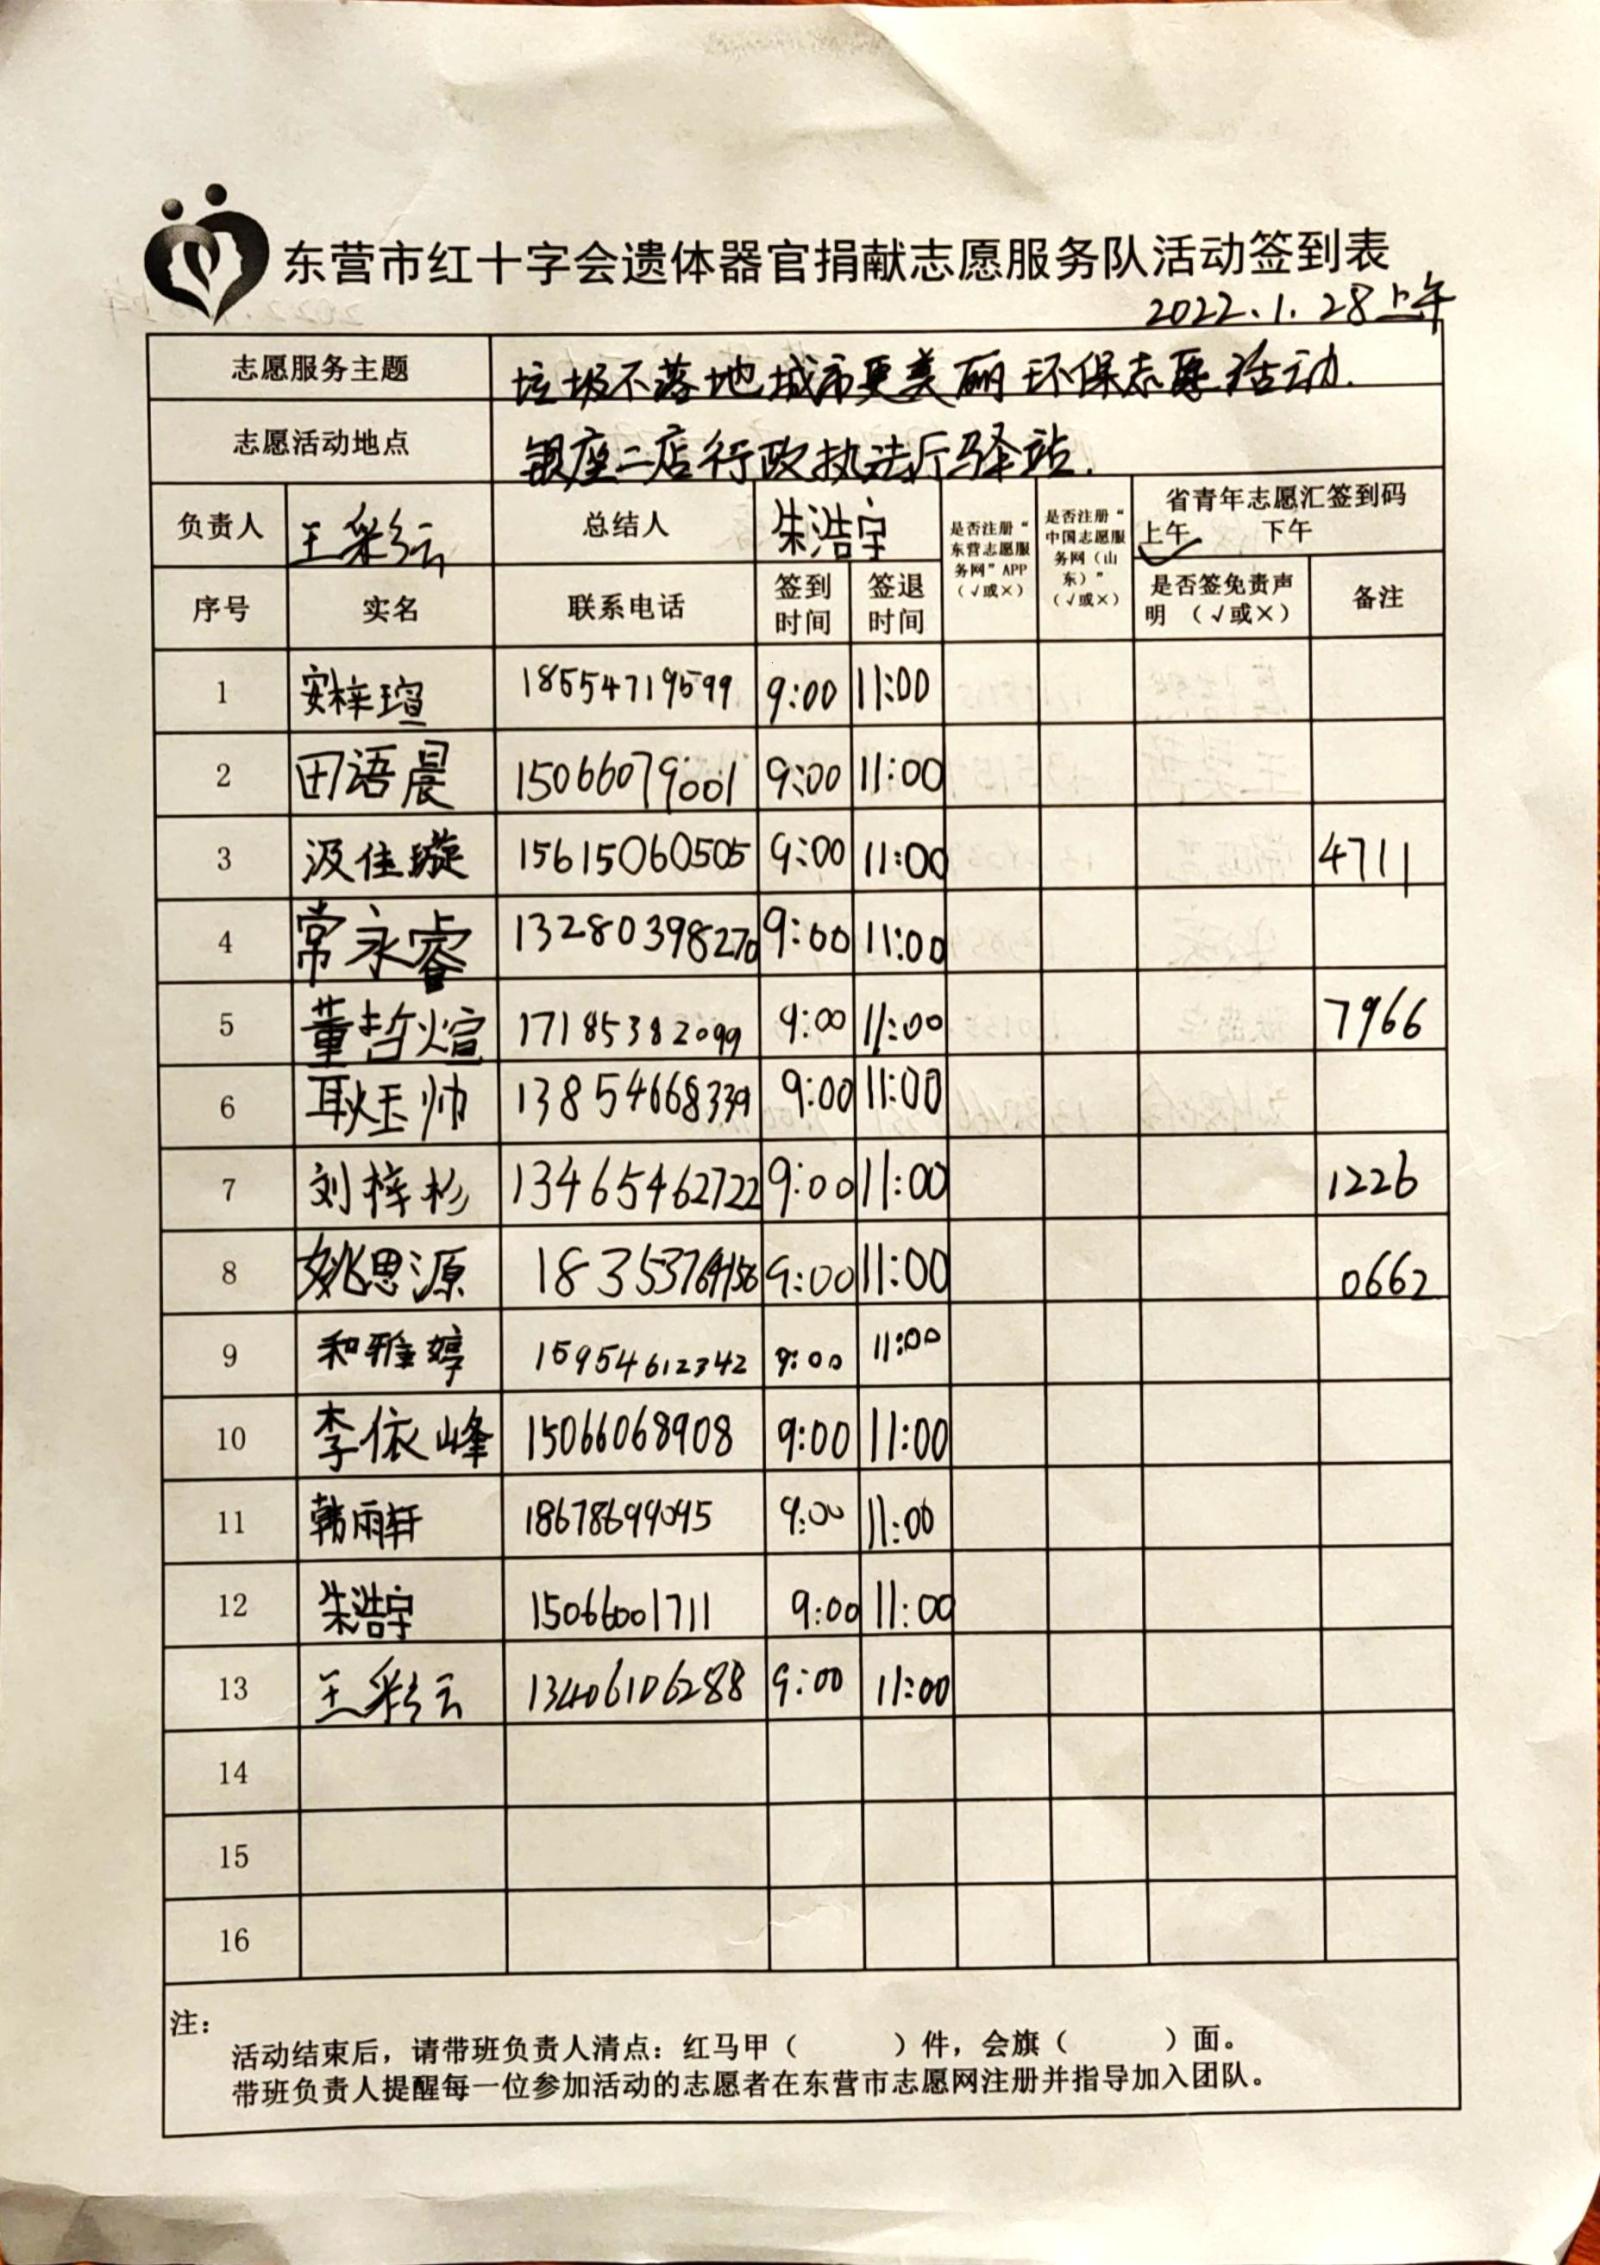 东营市红十字会遗体器官捐献志愿服务队活动签到表
2022.1.28上午
志愿服务主题 垃圾不落地城市更美丽环保志愿活动.
志愿活动地点 银座二店行政执法厅驿站.
负责人 王彩云 总结人 朱浩宇 是否注册“东营志愿服务网”APP（√或×） 是否注册“中国志愿服务网（山东）”（√或×） 省青年志愿汇签到码 上午✓ 下午
序号 实名 联系电话 签到时间 签退时间 是否签免责声明 （√或×） 备注
1 安梓瑄 18554719599 9:00 11:00
2 田语晨 15066079001 9:00 11:00
3 汲佳璇 15615060505 9:00 11:00 4711
4 常永睿 13280398270 9:00 11:00
5 董哲煊 17185382099 9:00 11:00 7966
6 耿玉帅 13854668339 9:00 11:00
7 刘梓杉 13465462722 9:00 11:00 1226
8 姚思源 9:00 11:00 0662
9 和雅婷 15954612342 9:00 11:00
10 李依峰 15066068908 9:00 11:00
11 韩雨轩 18678699095 9:00 11:00
12 朱浩宇 15066001711 9:00 11:00
13 王彩云 13406106288 9:00 11:00
14
15
16
注：
活动结束后，请带班负责人清点：红马甲（ ）件，会旗（ ）面。
带班负责人提醒每一位参加活动的志愿者在东营市志愿网注册并指导加入团队。